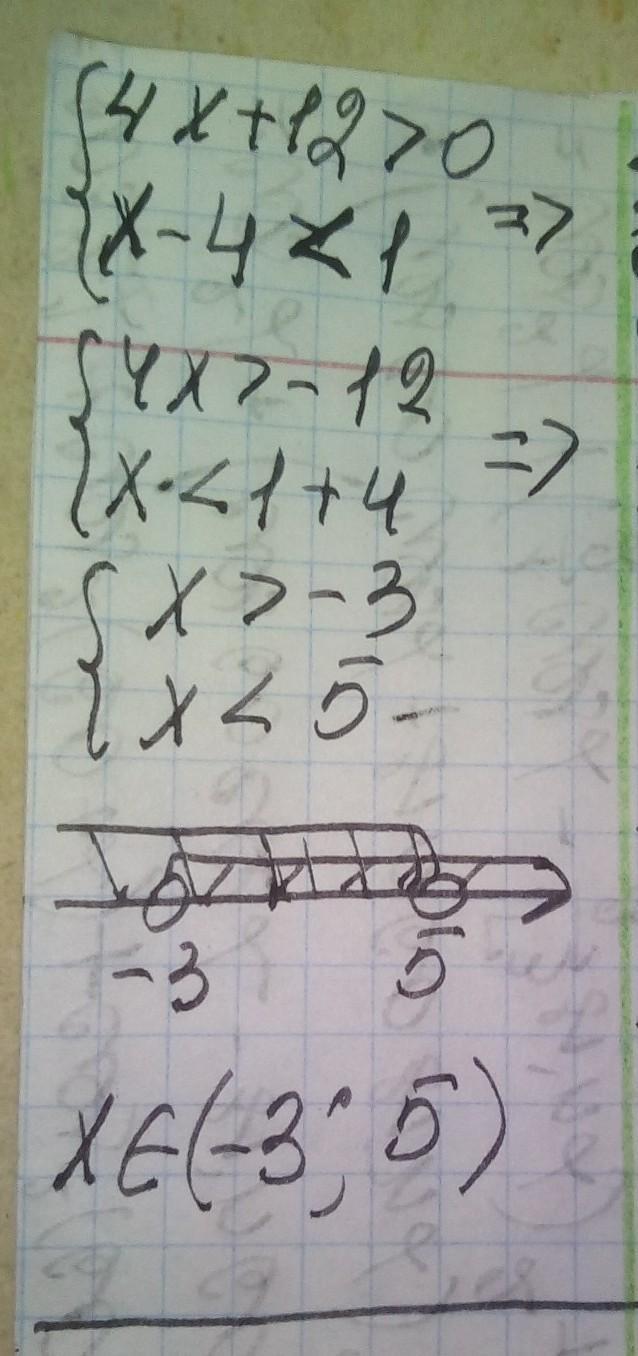 {4x+12>0
{x-4<1 =>
{4x>-12
{x<1+4 =>
{x>-3
{x<5
-3 5
x∈(-3; 5)